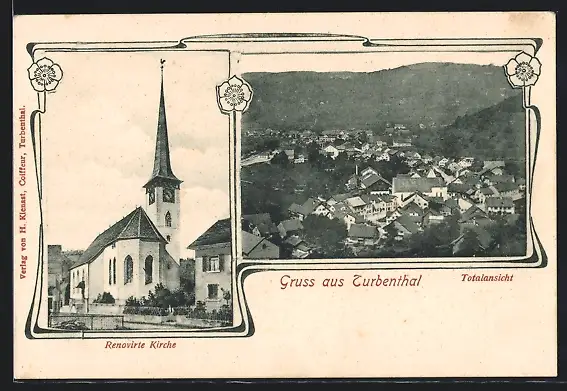 Verlag von H. Kienast, Coiffeur, Turbenthal.
Gruss aus Turbenthal
Totalansicht
Renovirte Kirche